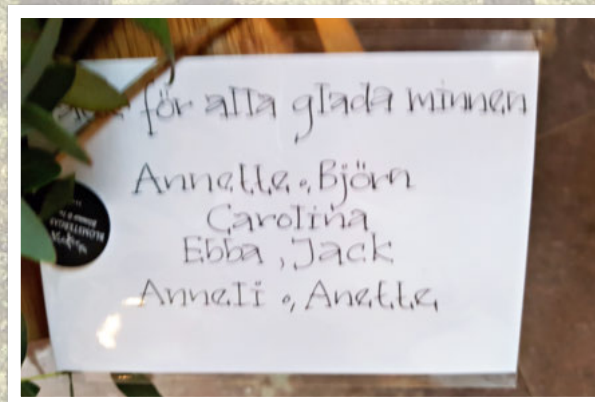 för alla glada minnen
Annette o. Björn
Carolina
Ebba, Jack
Anneli o. Anette